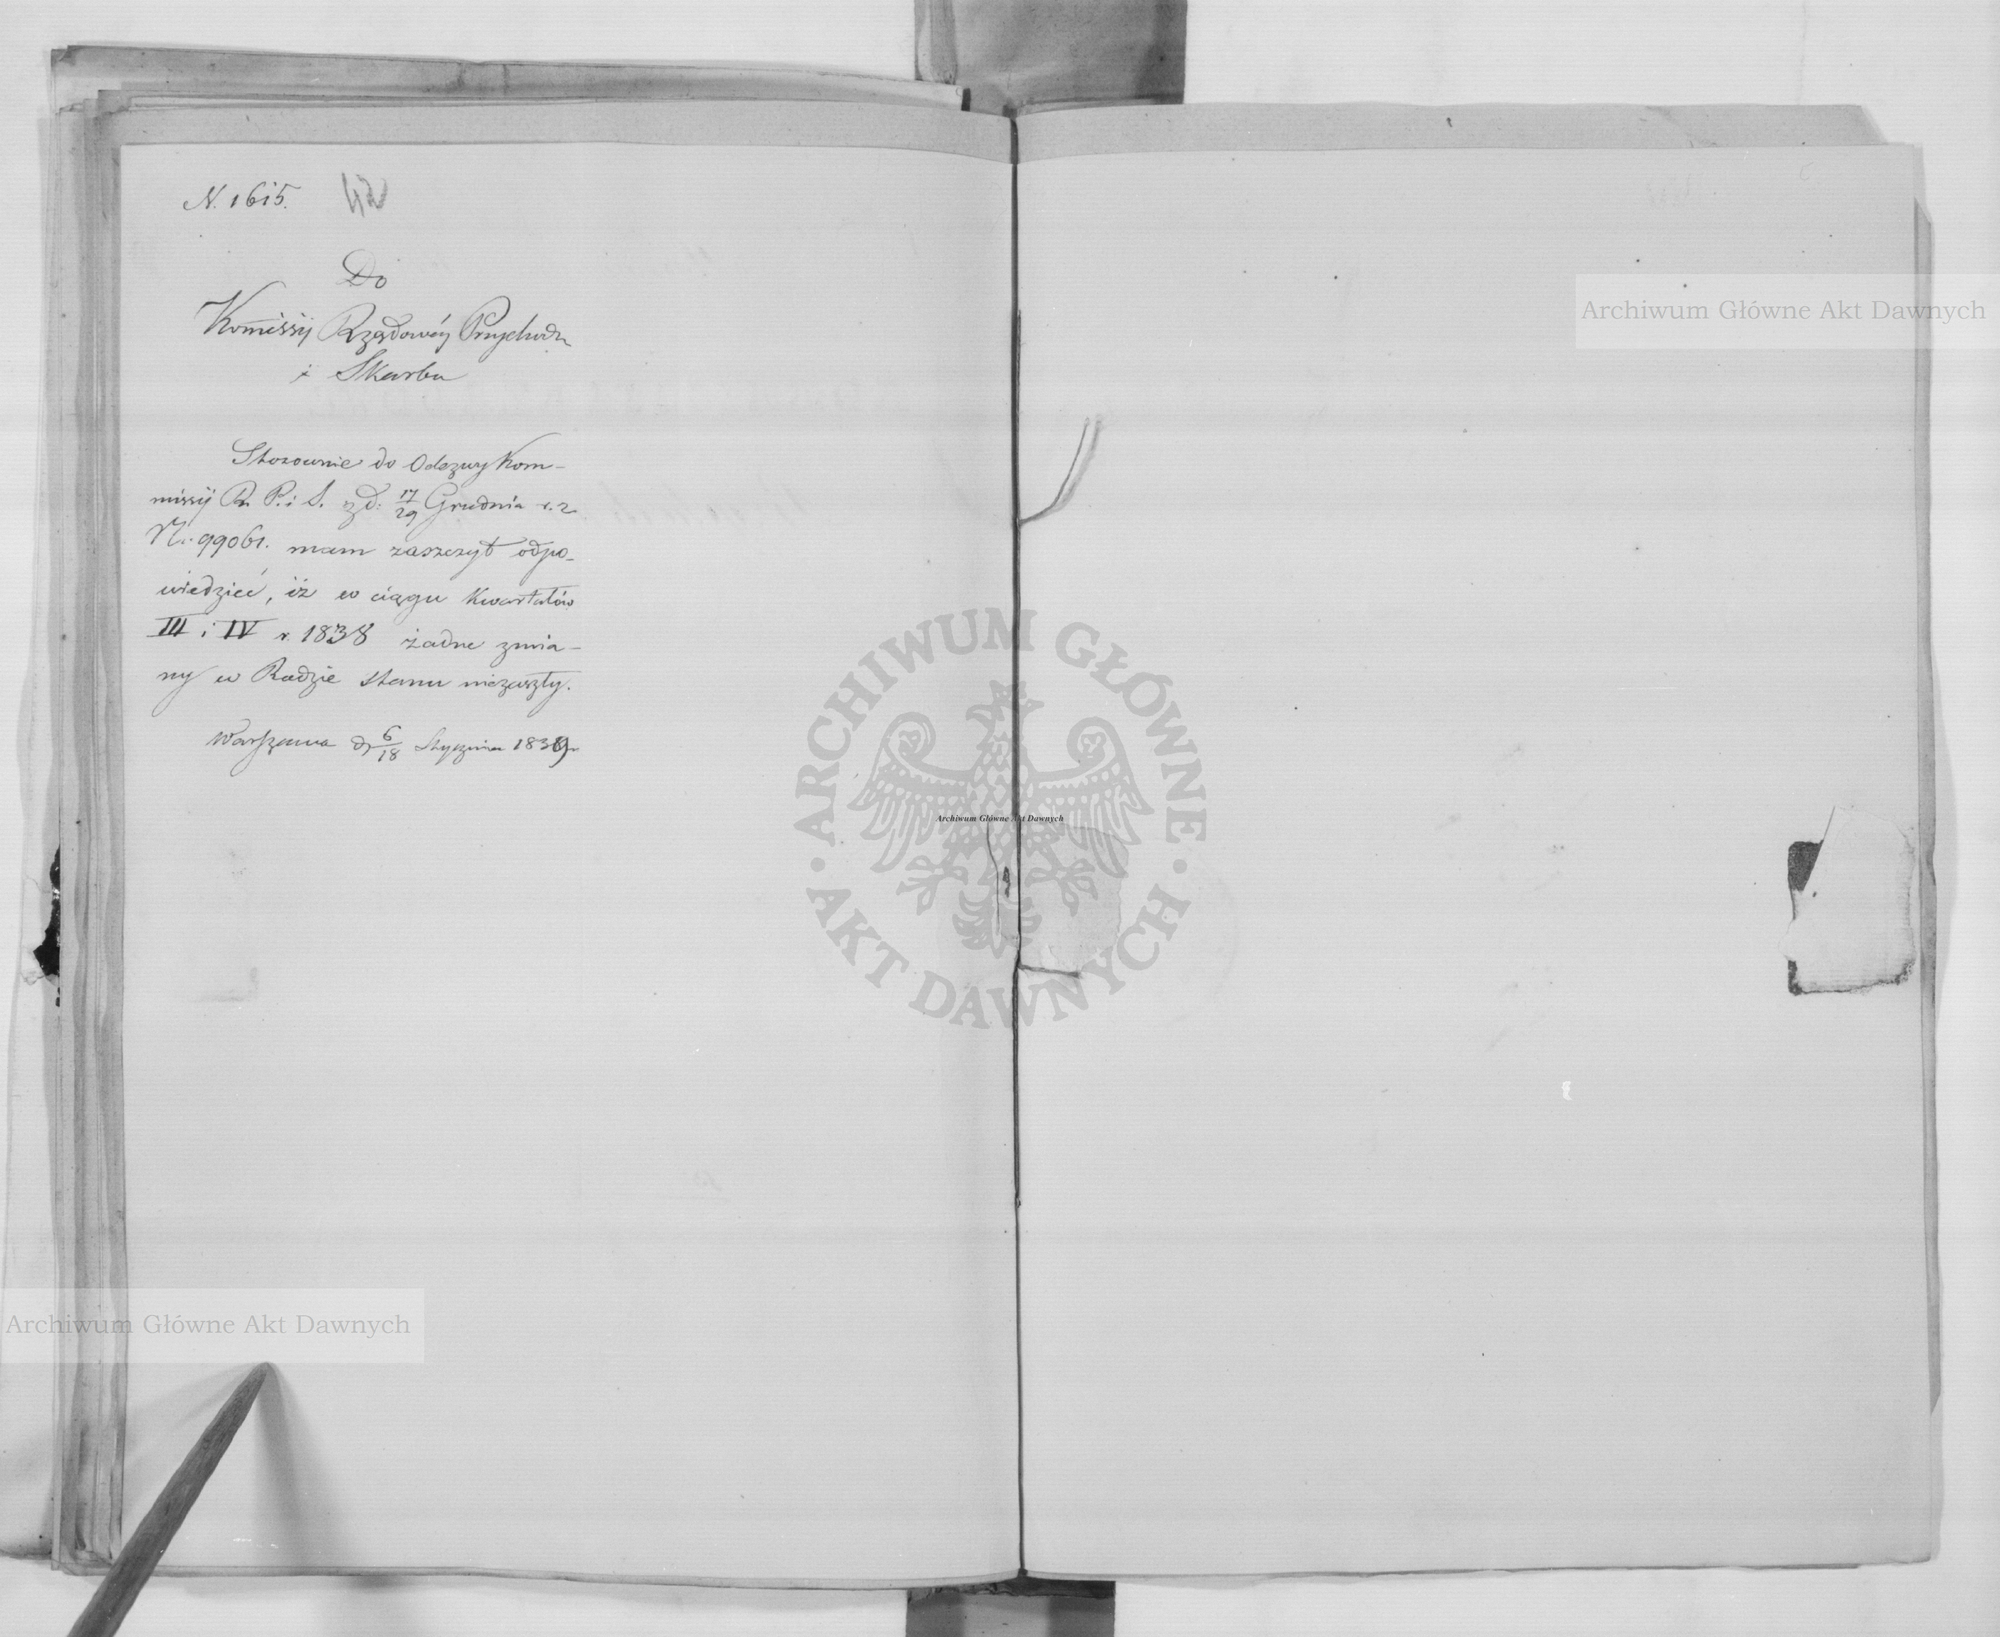 N. 1615. 42
Do
Kommissij Rządowéj Przychodu
i Skarbu
Stosownie do Odezwy Kom-
missij R. P. i S. z d: 17/29 Grudnia r. z
Nr. 99061. mam zaszczyt odpo-
wiedzieć, iż w ciągu Kwartałów
III i IV r. 1838 żadne zmia-
ny w Radzie Stanu niezaszły.
Warszawa d. 6/18 Stycznia 1839 r
Archiwum Główne Akt Dawnych
ARCHIWUM GŁÓWNE · AKT DAWNYCH ·
Archiwum Główne Akt Dawnych
Archiwum Główne Akt Dawnych